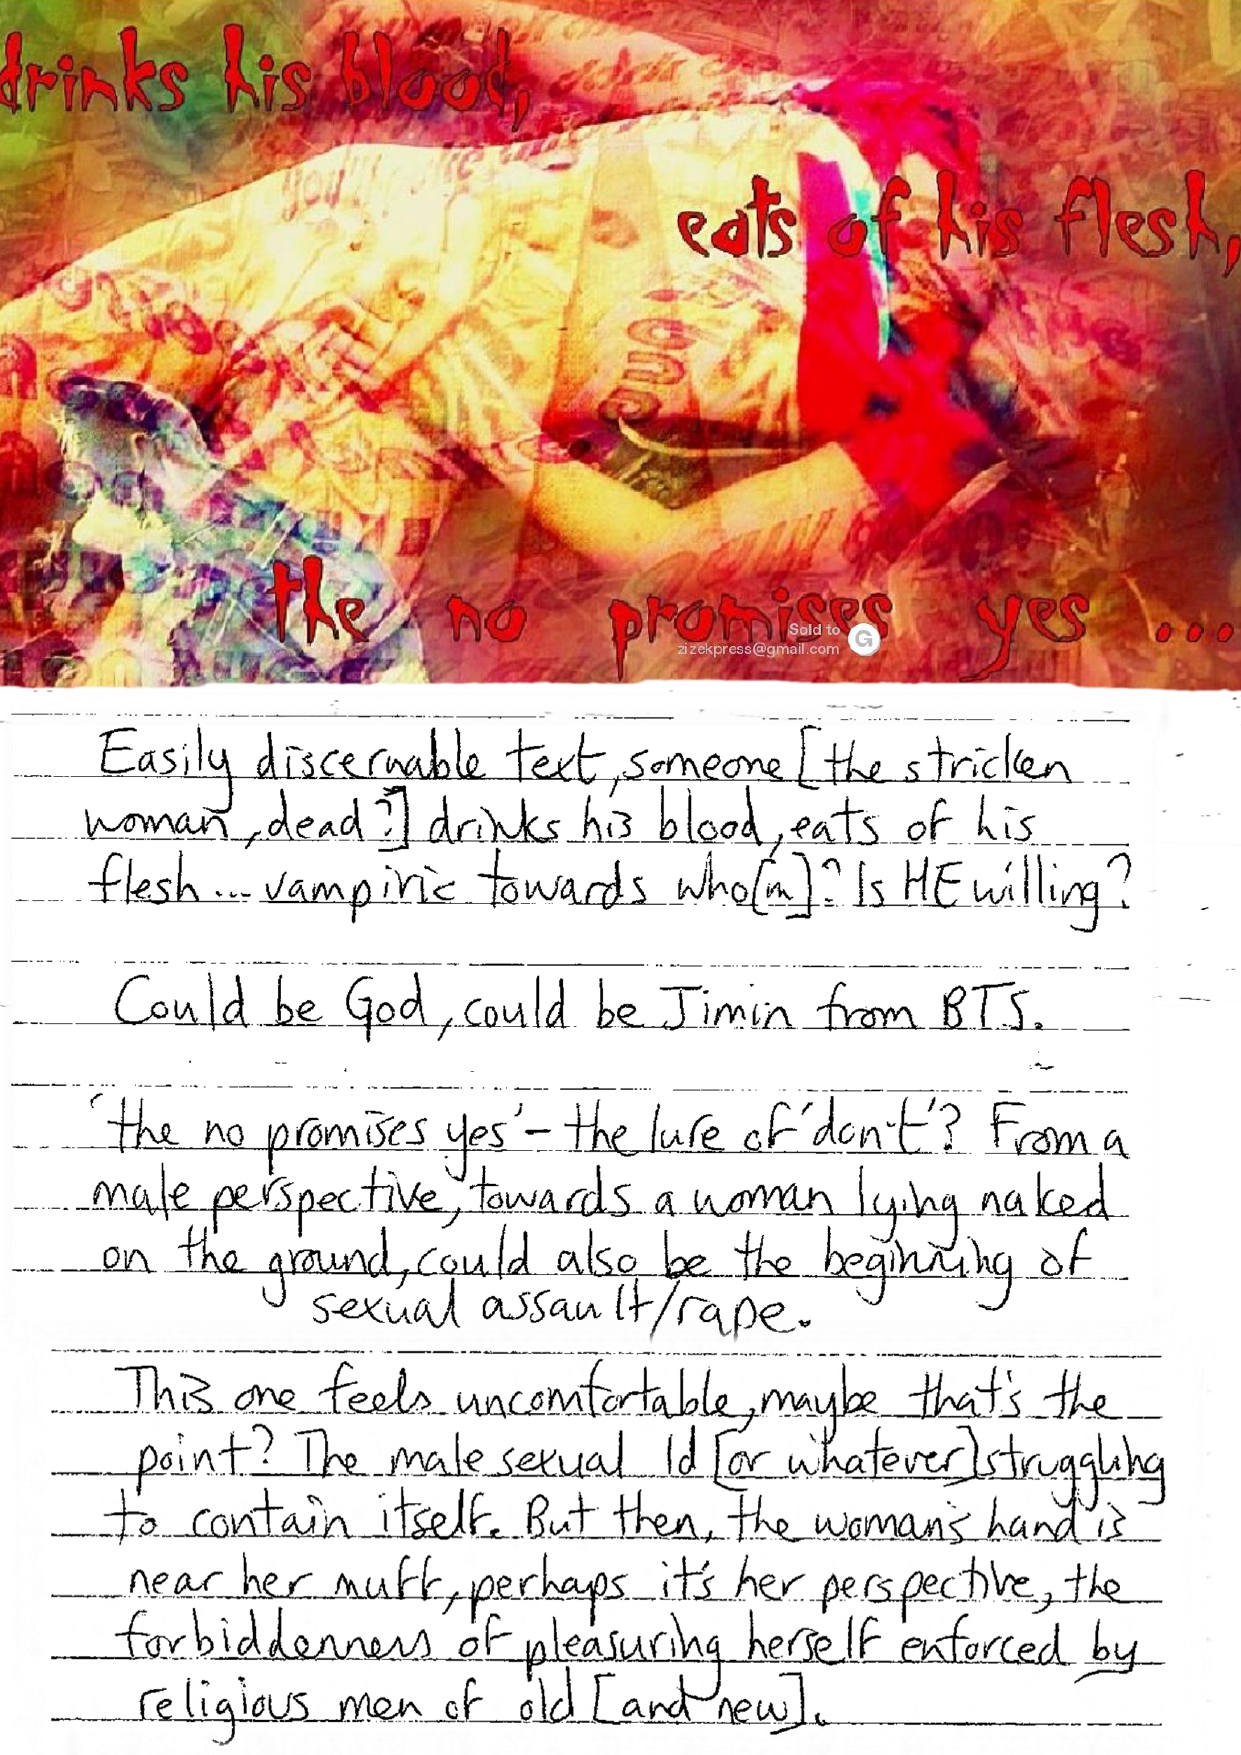 drinks his blood,
eats of his flesh,
the no promises yes ...
Sold to
zizekpress@gmail.com
G
Easily discernable text, someone [the stricken
woman, dead?] drinks his blood, eats of his
flesh... vampiric towards who[m]? Is HE willing?
Could be God, could be Jimin from BTS.
'the no promises yes' - the lure of 'don't'? From a
male perspective, towards a woman lying naked
on the ground, could also be the beginning of
sexual assault/rape.
This one feels uncomfortable, maybe that's the
point? The male sexual Id [or whatever] struggling
to contain itself. But then, the woman's hand is
near her muff, perhaps it's her perspective, the
forbiddenness of pleasuring herself enforced by
religious men of old [and new].